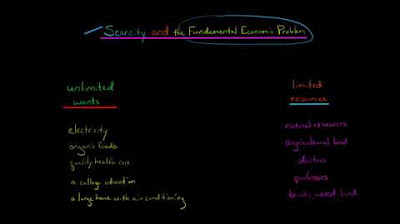 Scarcity and the Fundamental Economic Problem
unlimited
wants
electricity
organic foods
quality health care
a college education
a large home with air conditioning
limited
resources
natural resources
agricultural land
doctors
professors
bricks, wood, land